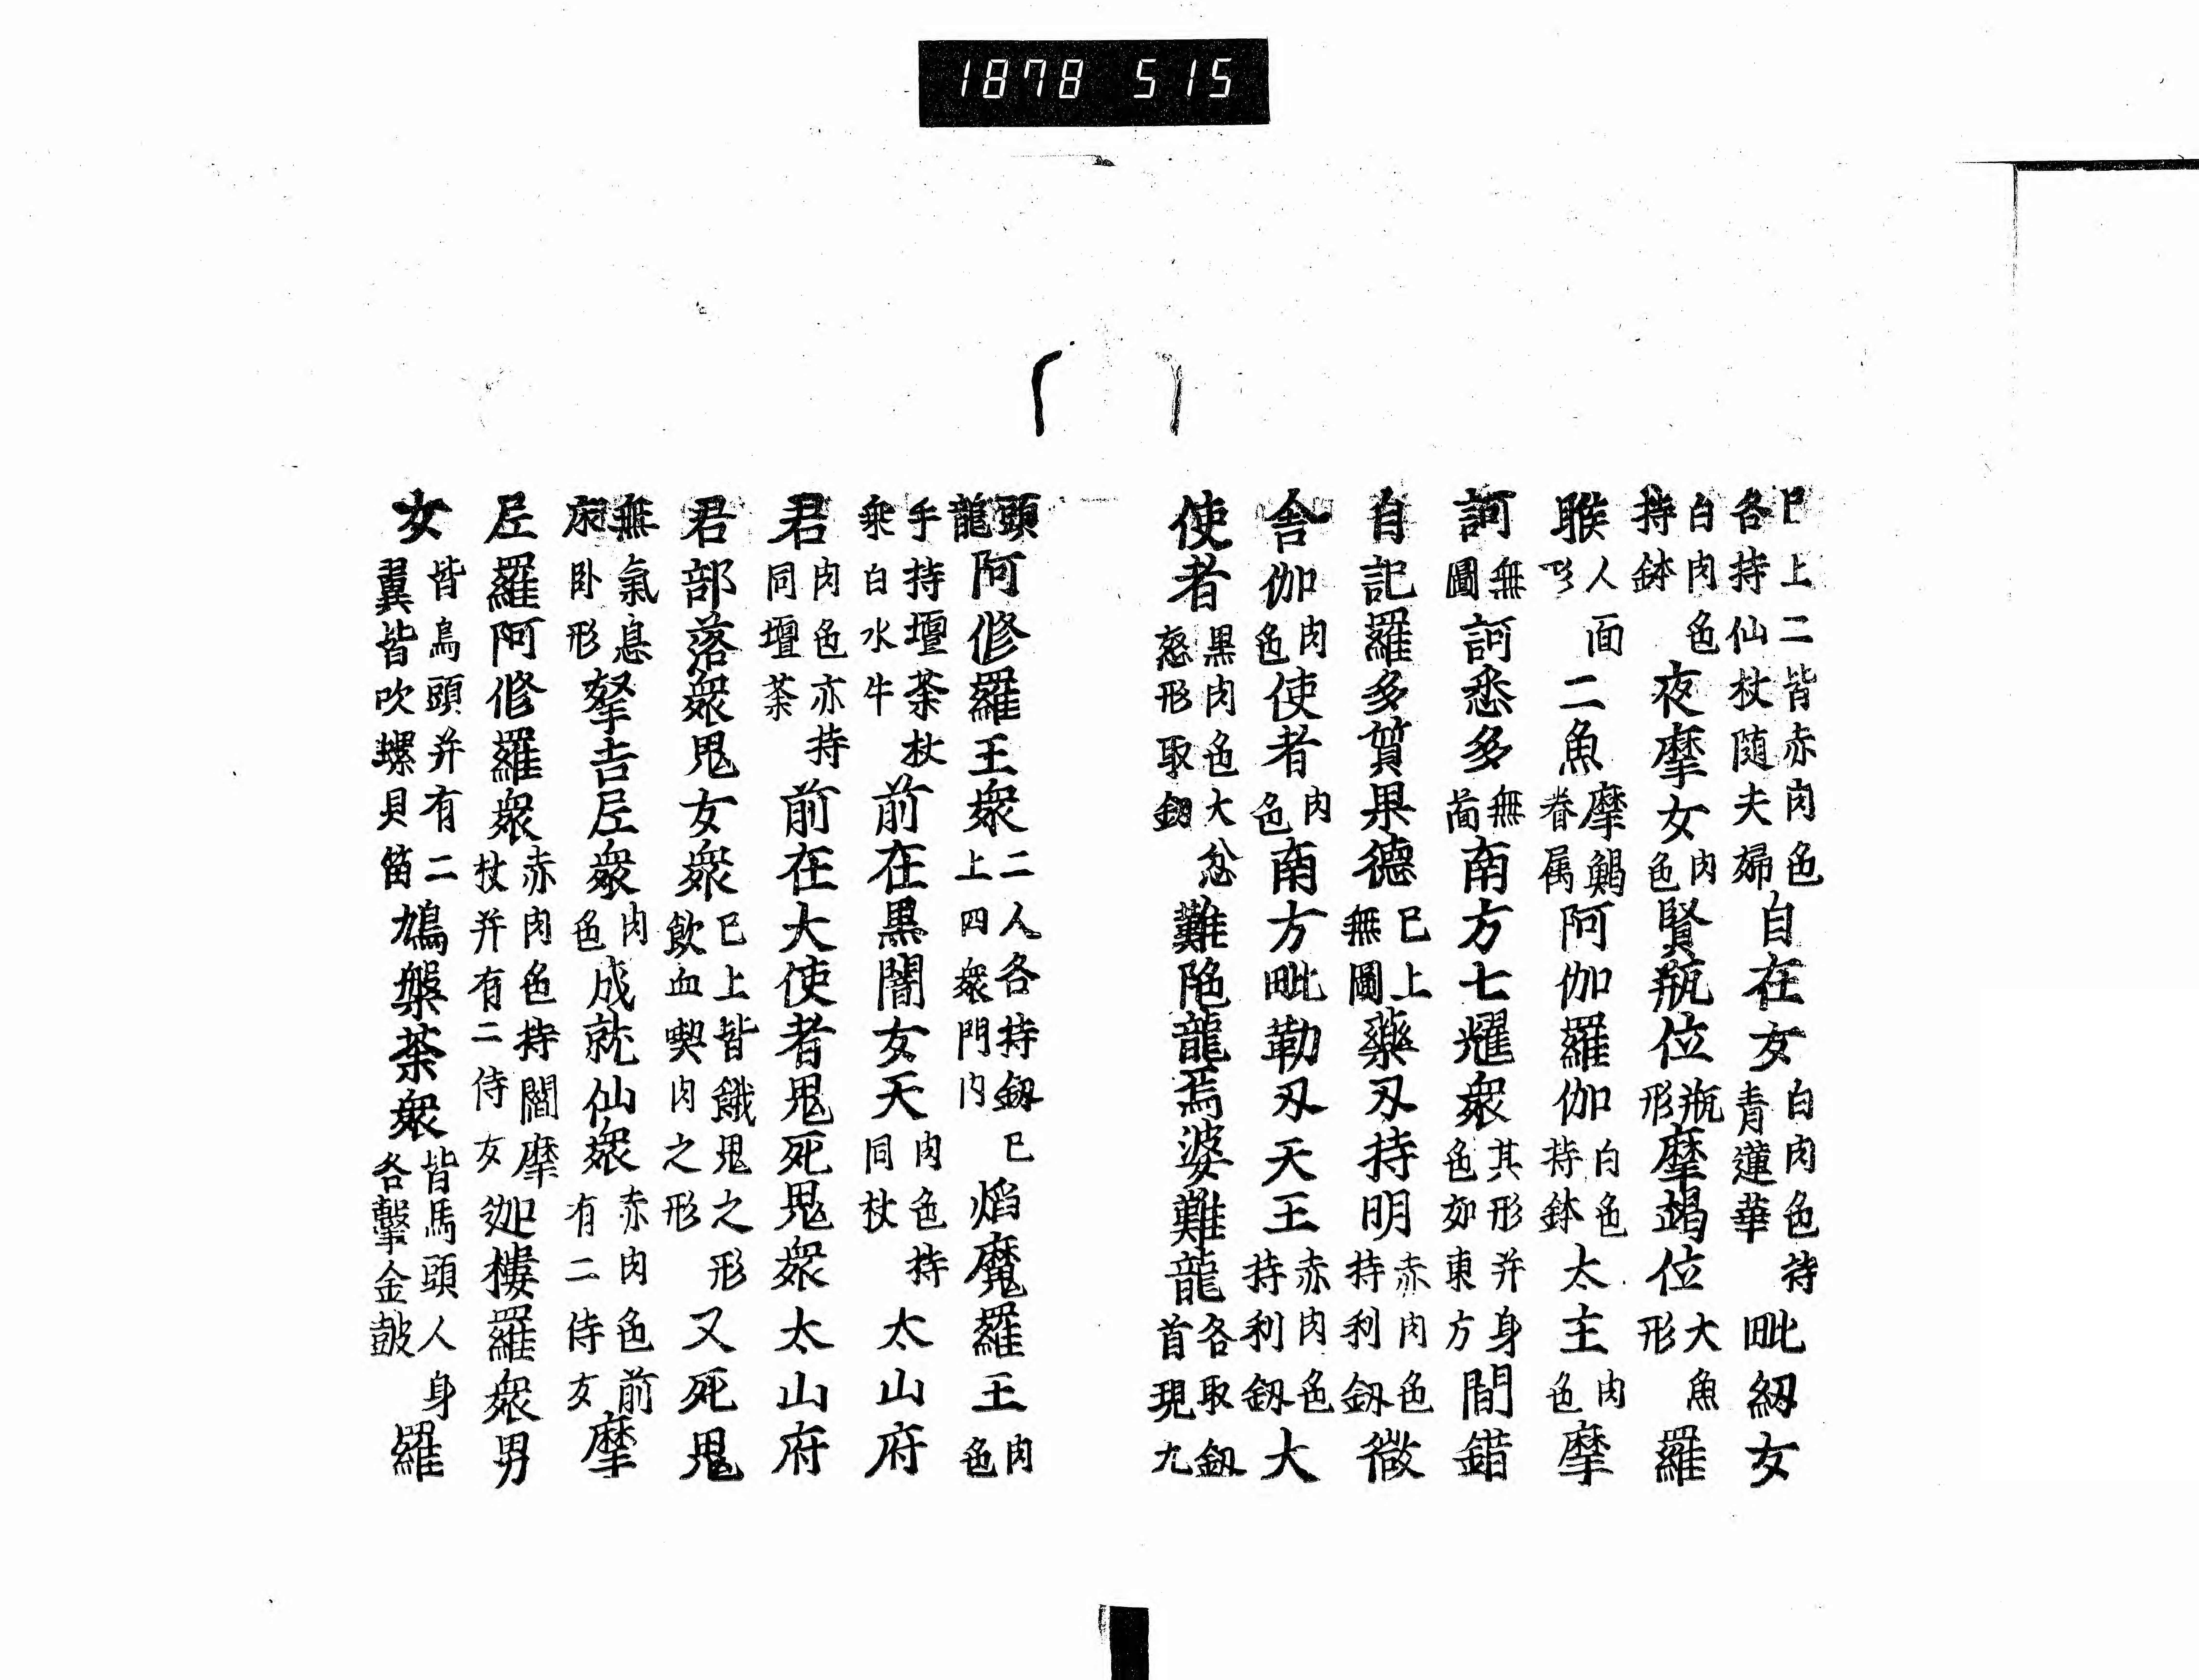 1878 515
巳上二皆赤肉色各持仙杖随夫婦自在女白肉色持青蓮華毗紐女
白肉色持鉢夜摩女肉色賢瓶位瓶形摩竭位大魚形羅
睺人面二魚摩竭眷属阿伽羅伽白色持鉢太主肉色摩
訶無圖訶悉多無啚南方七耀衆其形并身色如東方間錯
自記羅多質果德巳上無圖藥刄持明赤肉色持利釼微
舎伽肉色使者肉色南方毗勒刄天王赤肉色持利釼大
使者黒肉色大忿怒形取釼難陁龍焉婆難龍各取釼首現九
頭龍阿修羅王衆二人各持釼上四衆門内巳焰魔羅王肉色
手持壇荼杖乗白水牛前在黒闇女天肉色持同杖太山府
君肉色亦持同壇荼前在大使者鬼死鬼衆太山府
君部落衆鬼女衆巳上皆餓鬼之形飲血喫肉之形又死鬼
無氣息床卧形拏吉𡰱衆肉色成就仙衆赤肉色前有二侍女摩
𡰱羅阿修羅衆赤肉色持閻摩杖并有二侍女迦樓羅衆男
女皆鳥頭并有二翼皆吹螺貝笛鳩槃荼衆皆馬頭人身各擊金鼓羅